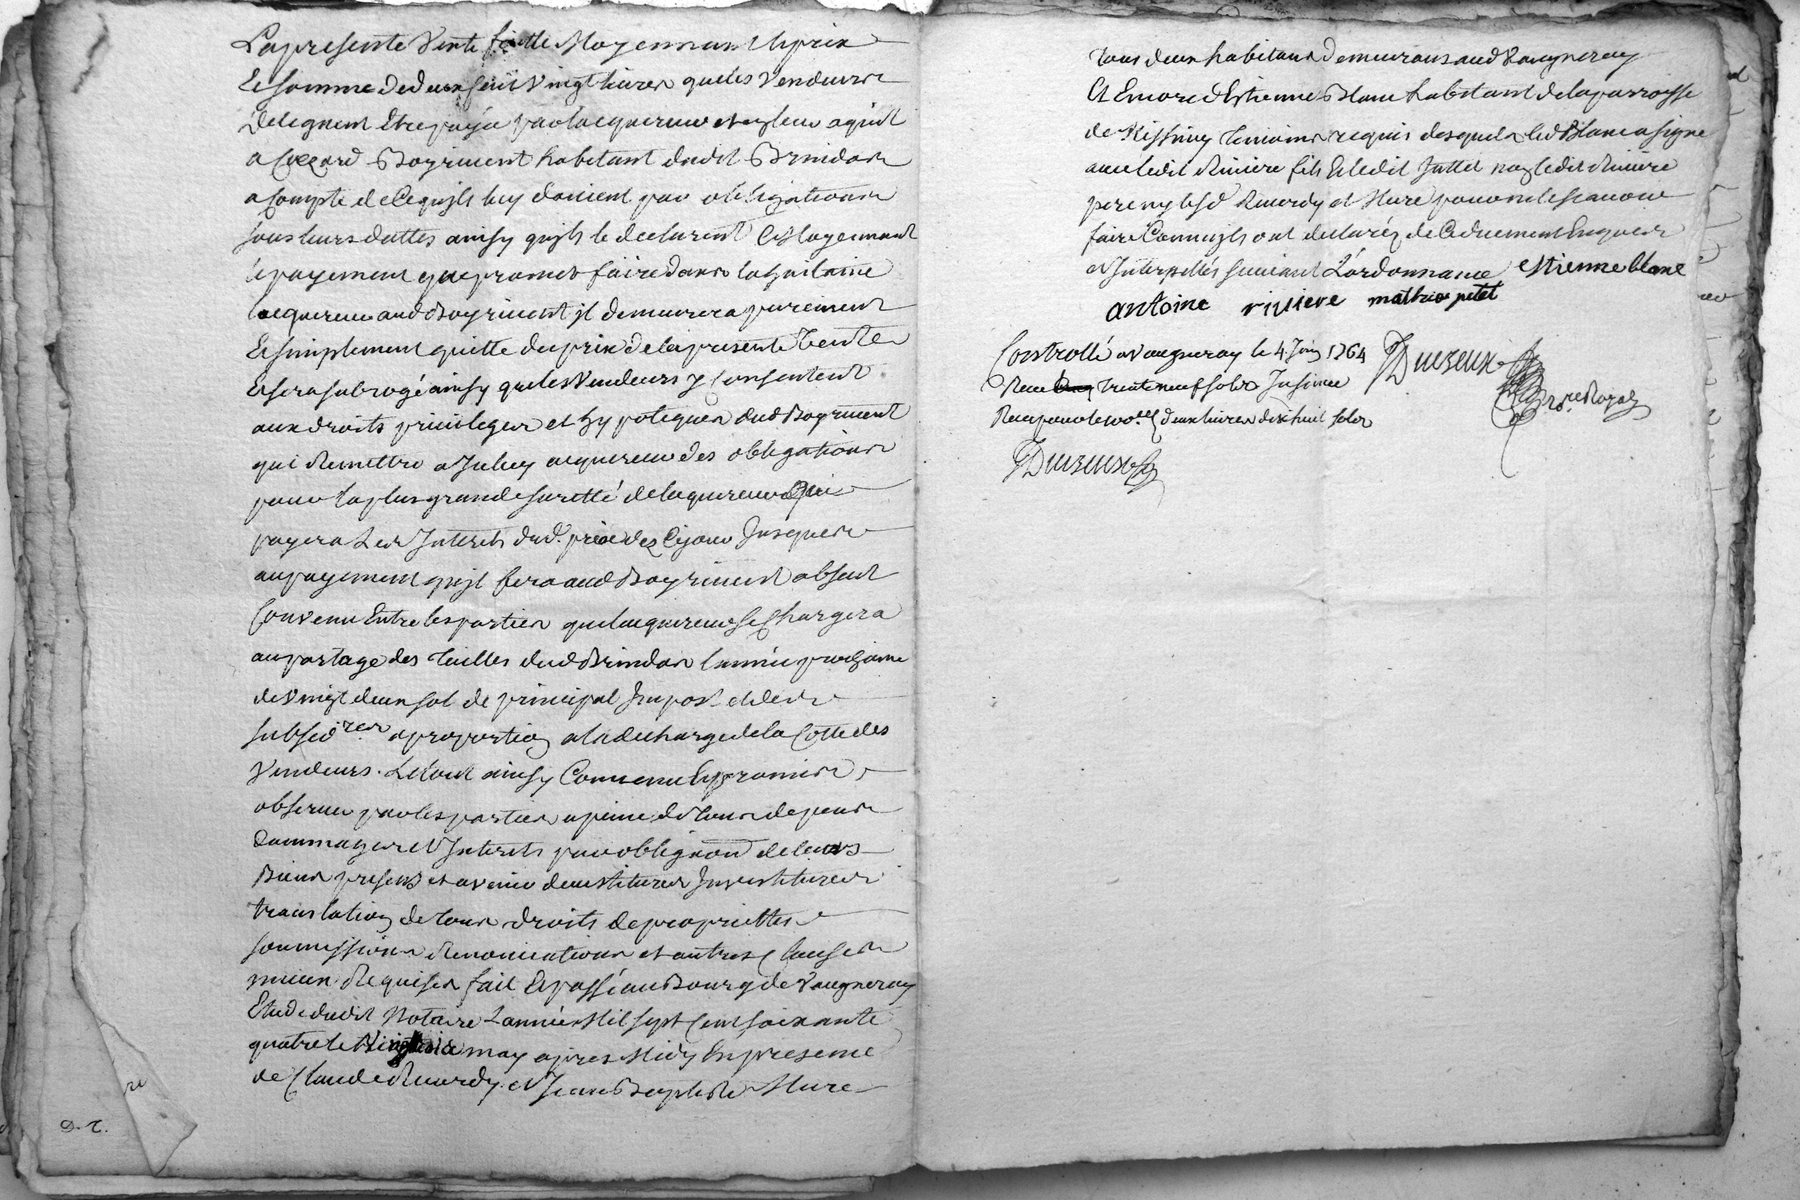 La presente vente faitte Moyennant le prix
Et somme de deux cent vingt livres que les vendeurs
delegnent Etre payé par lacquereur et en leur aquit
a Boyriment habitant dudit Brindas
a Compte de Ce qu'ils luy doivent par obligations
sous leurs dattes ainsy qu'ils le declarent Et Moyennant
le payement que promet faire dans la huitaine
lacquereur aud Boyriment il demeurera purement
Et simplement quitte du prix de la presente vente
Et sera subrogé ainsy que les vendeurs y Consentent
aux droits privileges et hypoteques dud Boyriment
qui Remettra a Iceluy acquereur des obligations
pour la plus grande suretté de laquereur qui
payera Les Interets dud. prix dez Cejour Jusques
au payement qu'il fera aud Boyriment absent
Convenu Entre les parties que lacquereur se Chargera
au partage des tailles dud Brindas lannée prochaine
de vingt deux sol de principal Impost et des
subsidres a proportion a la decharge de la Cotte des
Vendeurs. Le tout ainsy Convenu Et promis
observer par les parties a peine de tous depens
Dommages et Interets par obligaõn de leurs
Biens presens et avenir devestitures Investitures
translation de tous droits de propriettes
soumissions Renonciations et autres Clauses
mieux Requises fait Et passé au Bourg de Vaugneray
Etude dudit Notaire Lannée Mil sept Cent soixante
quatre le may apres Midy En presence
de Claude et Jean Baptiste Mure
tous deux habitans demeurans aud Vaugneray
Et Encore d'Estienne Blanc habitant de la parroisse
de temoins requis desquels led Blanc a signe
avec ledit Riviere fils Et ledit non ledit Riviere
pere ny lesd et Mure pour ne le scavoir
faire Comme ils ont declaréz de Ce duement Enquis
et Interpellés suivant L'ordonnance estienne blanc
antoine riviere mathieu petet
Controllé a Vaugneray le 4 Juin 1764
Reçu trente neuf sols Insinué
Reçu pour le deux livres dix huit sols